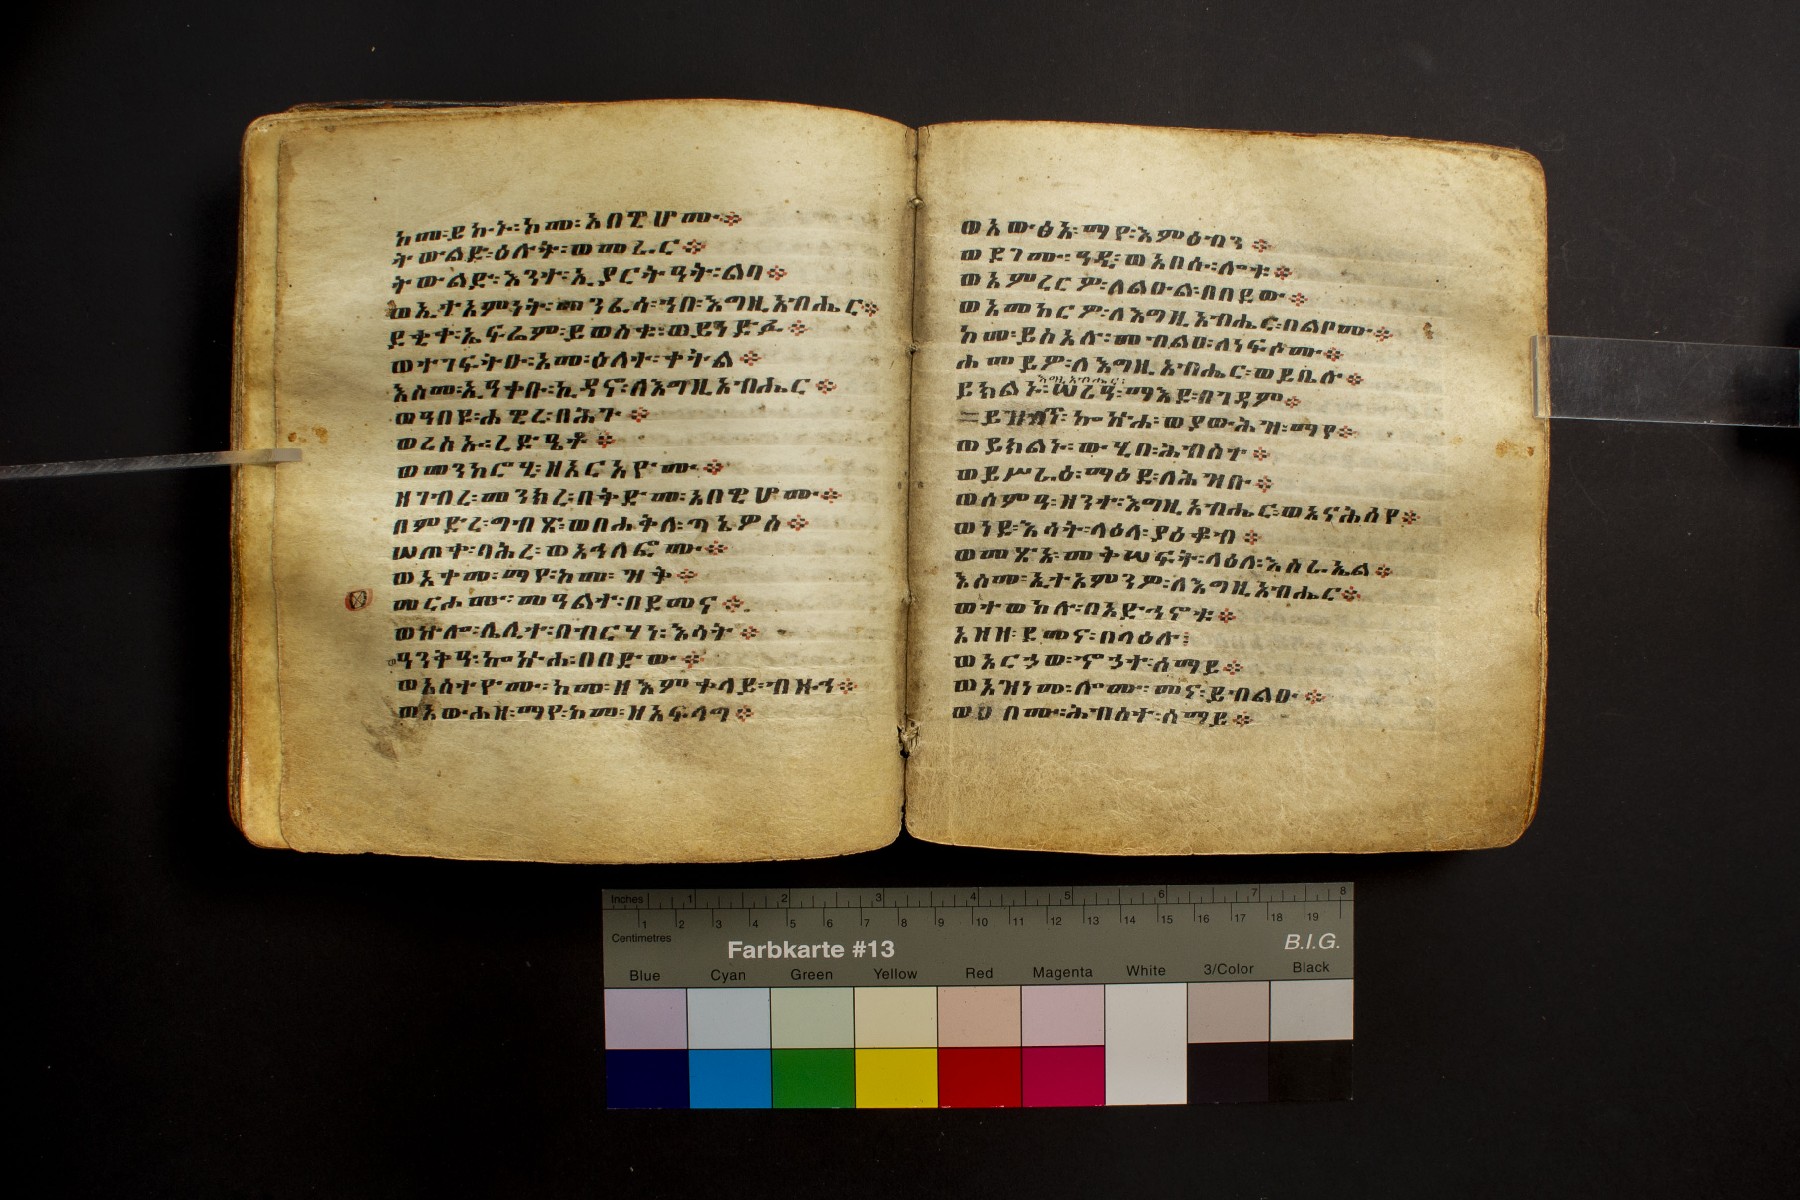 ከመ፡ይኩኑ፡ከመ፡አበዊሆሙ፨
ትውልድ፡ዕሉት፡ወመራር፨
ትውልድ፡እንተ፡ኢያርትዓት፡ልባ፨
ወኢተአምነት፡መንፈሳ፡ኀበ፡እግዚአብሔር፨
ደቂቀ፡ኤፍሬም፡ይወስቁ፡ወይነድፉ፨
ወተገፍትዑ፡አመ፡ዕለተ፡ቀትል፨
እስመ፡ኢዓቀቡ፡ኪዳኖ፡ለእግዚአብሔር፨
ወዓበዩ፡ሐዊረ፡በሕጉ፨
ወረስኡ፡ረድዔቶ፨
ወመንክሮሂ፡ዘአርአዮሙ፨
ዘገብረ፡መንክረ፡በቅድመ፡አበዊሆሙ፨
በምድረ፡ግብጽ፡ወበሐቅለ፡ጣኔዎስ፨
ሠጠቀ፡ባሕረ፡ወአኅለፎሙ፨
ወአቀመ፡ማየ፡ከመ፡ዝቅ፨
መርሖሙ፡መዓልተ፡በደመና፨
ወኵሎ፡ሌሊተ፡በብርሃነ፡እሳት፨
ወዓንቅዓ፡ኰኵሐ፡በበድው፨
ወአስተዮሙ፡ከመ፡ዘእምቀላይ፡ብዙኅ፨
ወአውሐዘ፡ማየ፡ከመ፡ዘአፍላግ፨
ወአውፅአ፡ማየ፡እምዕብን፨
ወደገሙ፡ዓዲ፡ወአበሱ፡ሎቱ፨
ወአምረርዎ፡ለልዑል፡በበደው፨
ወአመከርዎ፡ለእግዚአብሔር፡በልቦሙ፨
ከመ፡ይስአሉ፡መብልዐ፡ለነፍሶሙ፨
ሐመይዎ፡ለእግዚአብሔር፡ወይቤሉ፨
እግዚአብሔር፡
ይክልኑ፡ሠሪዓ፡ማእደ፡በገዳም፨
ኰኵሐ፡ወያውሕዝ፡ማየ፨
ወይክልኑ፡ውሂበ፡ሕብስተ፨
ወይሥራዕ፡ማዕደ፡ለሕዝቡ፨
ወሰምዓ፡ዘንተ፡እግዚአብሔር፡ወአናሕሰየ፨
ወነደ፡እሳት፡ላዕለ፡ያዕቆብ፨
ወመጽአ፡መቅሠፍት፡ላዕለ፡እስራኤል፨
እስመ፡ኢተአምንዎ፡ለእግዚአብሔር፨
ወተወከሉ፡በአድኅኖቱ፨
አዘዘ፡ደመና፡በላዕሉ፤
ወአርኃወ፡ኆኃተ፡ሰማይ፨
ወአዝነመ፡ሎሙ፡መና፡ይብልዑ፨
ወወሀቦሙ፡ሕብስተ፡ሰማይ፨